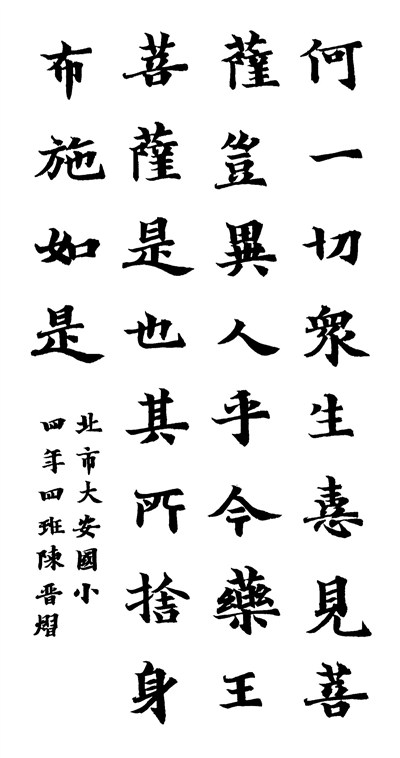 何一切衆生憙見菩
薩豈異人乎今藥王
菩薩是也其所捨身
布施如是
北市大安國小
四年四班陳晉熠